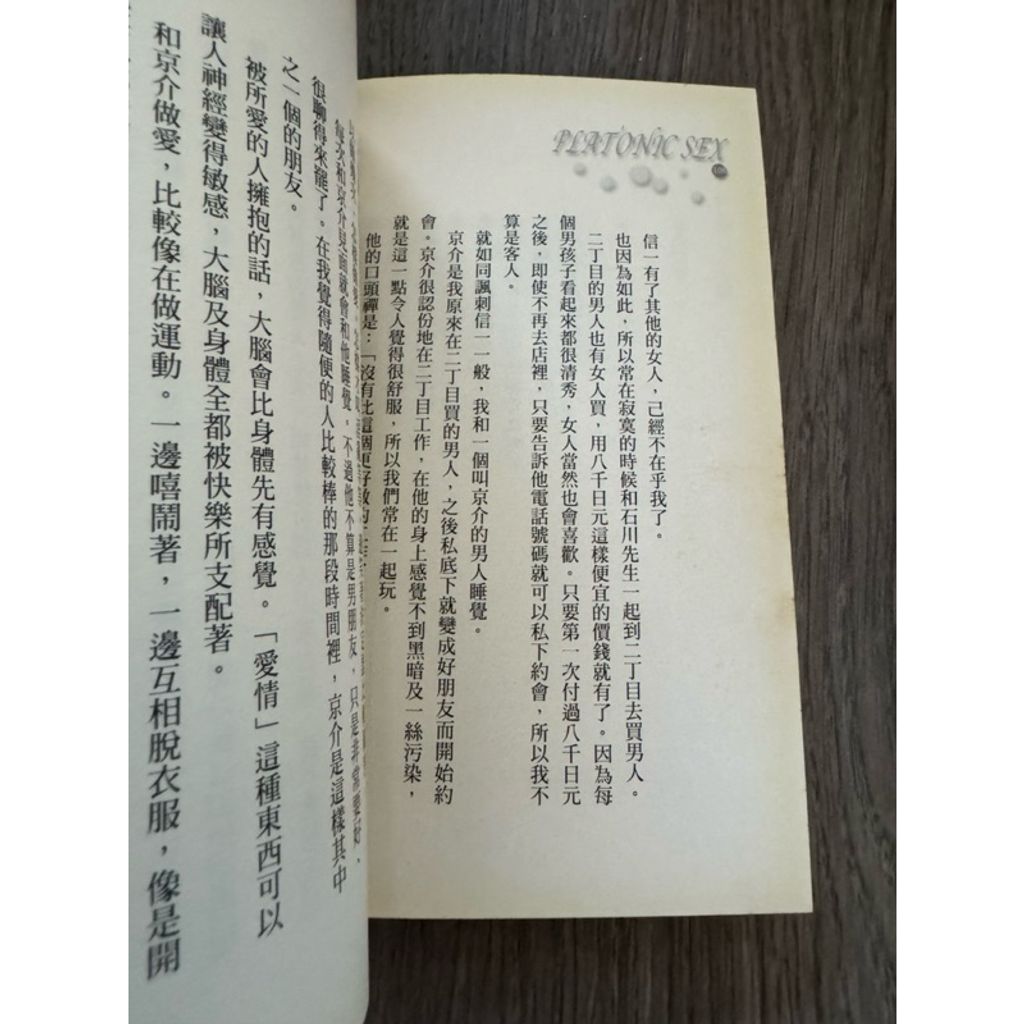 PLATONIC SEX
信一有了其他的女人，已經不在乎我了。
也因為如此，所以常在寂寞的時候和石川先生一起到二丁目去買男人。
二丁目的男人也有女人買，用八千日元這樣便宜的價錢就有了。因為每
個男孩子看起來都很清秀，女人當然也會喜歡。只要第一次付過八千日元
之後，即使不再去店裡，只要告訴他電話號碼就可以私下約會，所以我不
算是客人。
就如同諷刺信一一般，我和一個叫京介的男人睡覺。
京介是我原來在二丁目買的男人，之後私底下就變成好朋友而開始約
會。京介很認份地在二丁目工作，在他的身上感覺不到黑暗及一絲污染，
就是這一點令人覺得很舒服，所以我們常在一起玩。
他的口頭禪是：「沒有比這個更好做的
每次和京介見面就會和他睡覺。不過他不算是男朋友，只是非常要好、
很聊得來罷了。在我覺得隨便的人比較棒的那段時間裡，京介是這樣其中
之一個的朋友。
被所愛的人擁抱的話，大腦會比身體先有感覺。「愛情」這種東西可以
讓人神經變得敏感，大腦及身體全都被快樂所支配著。
和京介做愛，比較像在做運動。一邊嘻鬧著，一邊互相脫衣服，像是開